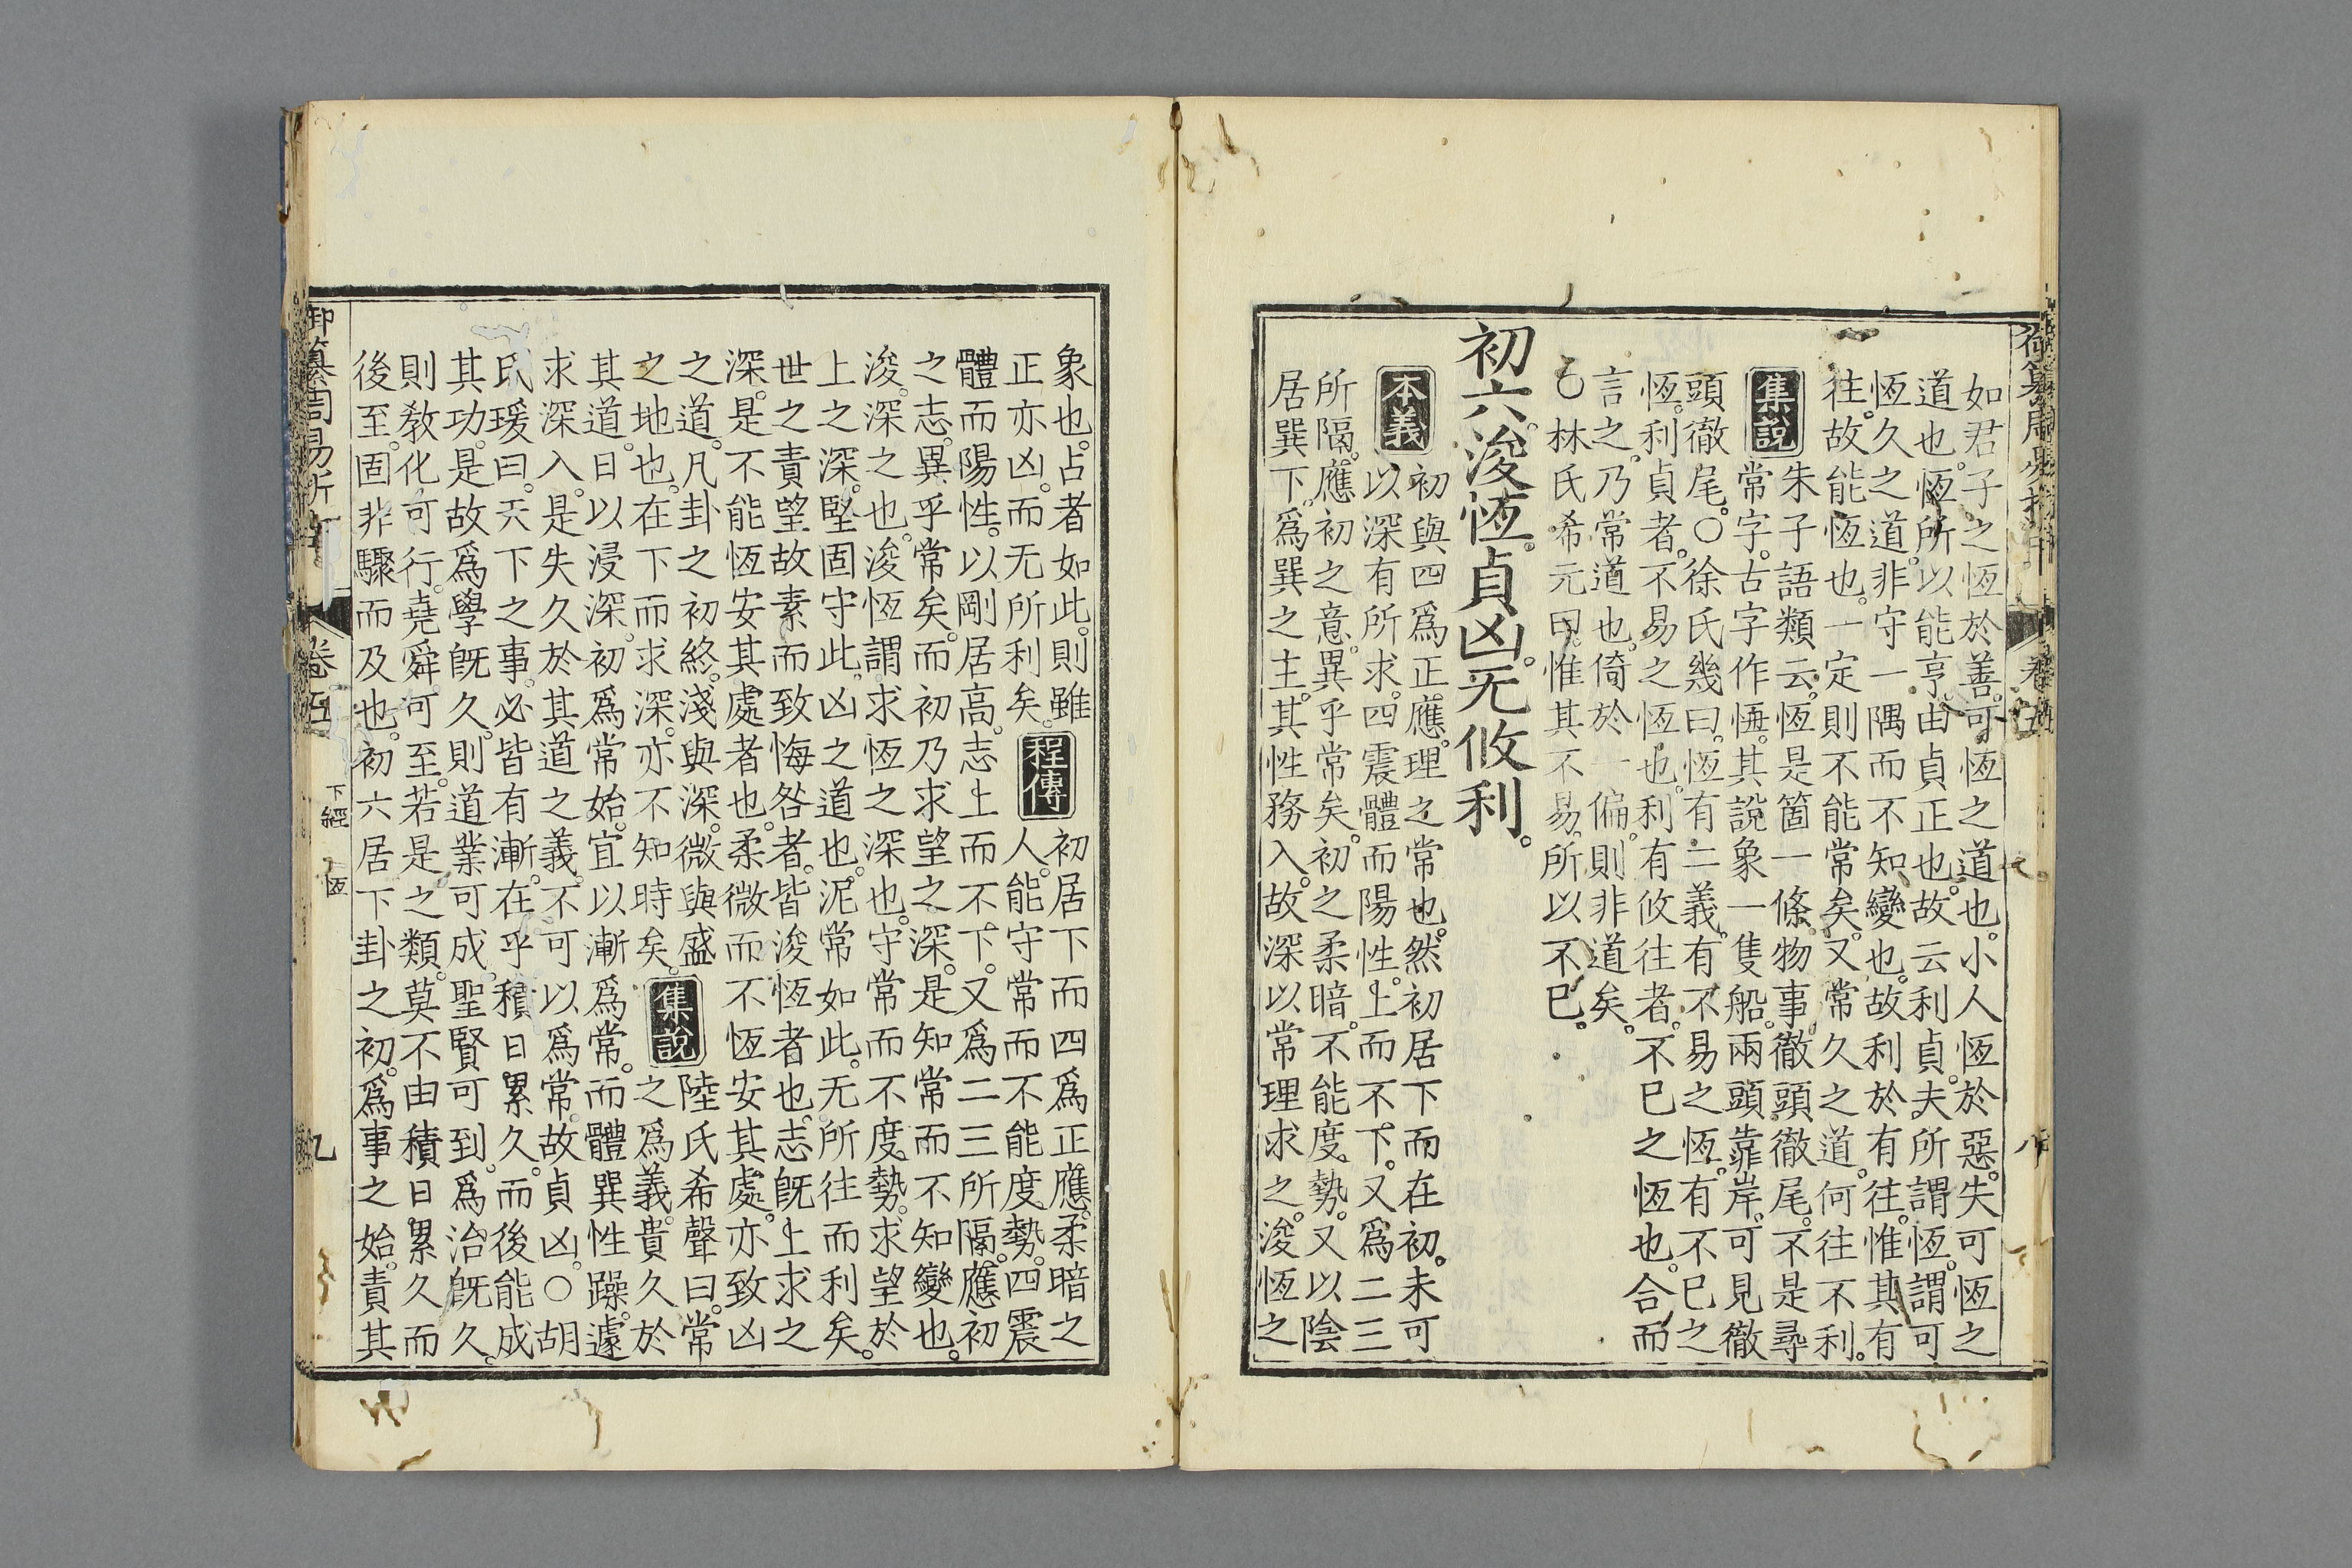 御纂周易折中 卷五 八
如君子之恆於善。可恆之道也。小人恆於惡。失可恆之
道也。恆所以能亨。由貞正也。故云利貞。夫所謂恆。謂可
恆久之道。非守一隅而不知變也。故利於有往。惟其有
往。故能恆也。一定則不能常矣。又常久之道。何往不利。
集說 朱子語類云。恆是箇一條物事。徹頭徹尾。不是尋
常字。古字作㮓。其說象一隻船。兩頭靠岸。可見徹
頭徹尾。○徐氏幾曰。恆有二義。有不易之恆。有不已之
恆。利貞者。不易之恆也。利有攸往者。不已之恆也。合而
言之。乃常道也。倚於一偏。則非道矣。
○林氏希元曰。惟其不易。所以不已。
初六。浚恆。貞凶。无攸利。
本義 初與四爲正應。理之常也。然初居下而在初。未可
以深有所求。四震體而陽性。上而不下。又爲二三
所隔。應初之意。異乎常矣。初之柔暗。不能度勢。又以陰
居巽下。爲巽之主。其性務入。故深以常理求之。浚恆之
象也。占者如此。則雖
正亦凶。而无所利矣。 程傳 初居下而四爲正應。柔暗之
人。能守常而不能度勢。四震
體而陽性。以剛居高。志上而不下。又爲二三所隔。應初
之志。異乎常矣。而初乃求望之深。是知常而不知變也。
浚。深之也。浚恆謂求恆之深也。守常而不度勢。求望於
上之深。堅固守此。凶之道也。泥常如此。无所往而利矣。
世之責望故素而致悔咎者。皆浚恆者也。志旣上求之
深。是不能恆安其處者也。柔微而不恆安其處。亦致凶
之道。凡卦之初終。淺與深。微與盛
之地也。在下而求深。亦不知時矣。 集說 陸氏希聲曰。常
之爲義。貴久於
其道。日以浸深。初爲常始。宜以漸爲常。而體巽性躁。遽
求深入。是失久於其道之義。不可以爲常。故貞凶。○胡
氏瑗曰。天下之事。必皆有漸。在乎積日累久。而後能成
其功。是故爲學旣久。則道業可成。聖賢可到。爲治旣久。
則敎化可行。堯舜可至。若是之類。莫不由積日累久而
後至。固非驟而及也。初六居下卦之初。爲事之始。責其
御纂周易折中 卷五 下經 恆 九